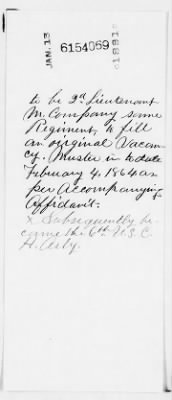 JAN. 13
6154059
1891
to be 2d Lieutenant
M. Company same
Regiment, to fill
an original Vacan-
cy. Muster in to date
February 4, 1864 as
per Accompanying
Affidavit.
x Subsequently be-
came the 6th U.S.C.
H. Arty.